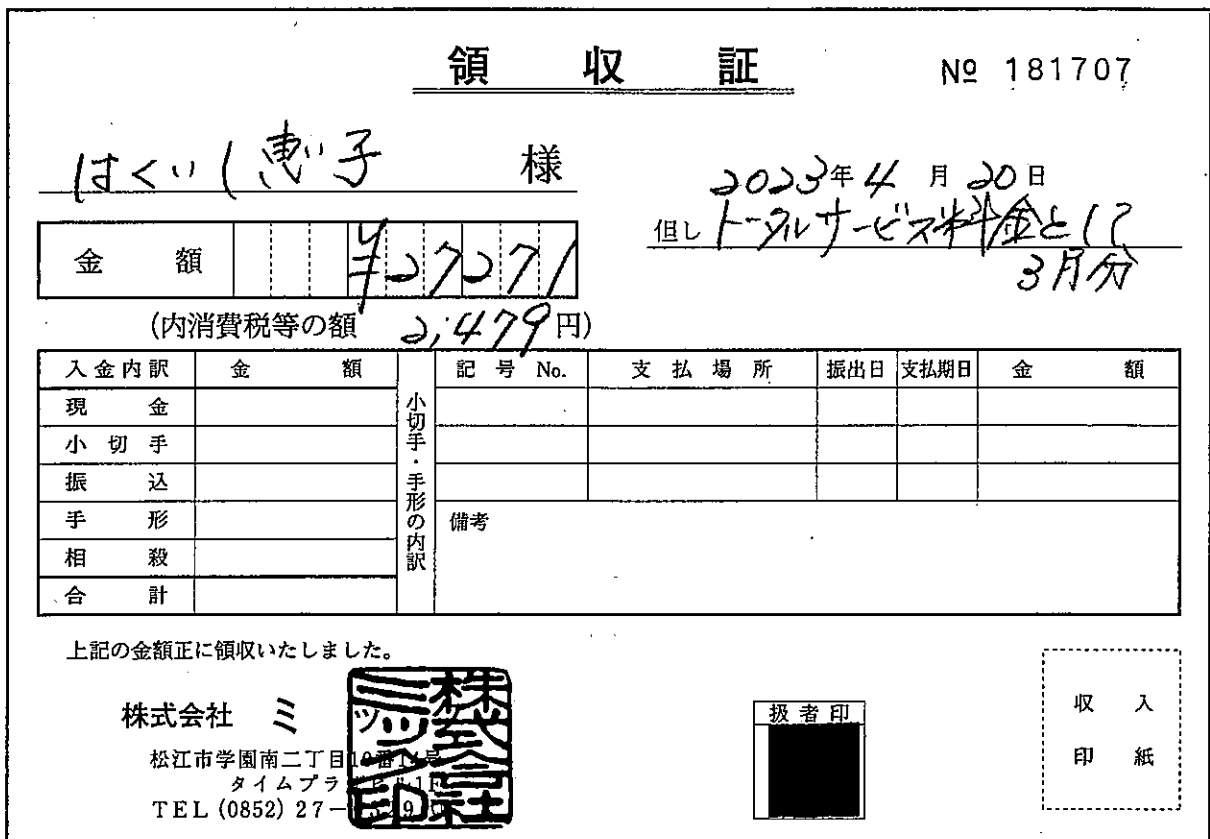 領収証
№ 181707
はくいし恵子 様
2023年4月20日
但し トータルサービス料金として
3月分
金額 ¥27271
(内消費税等の額 2,479円)
入金内訳 金額 小切手・手形の内訳 記号 No. 支払場所 振出日 支払期日 金額
現金
小切手
振込
手形 備考
相殺
合計
上記の金額正に領収いたしました。
株式会社 ミ
松江市学園南二丁目
タイムプラ
TEL (0852) 27-
扱者印
収入
印紙